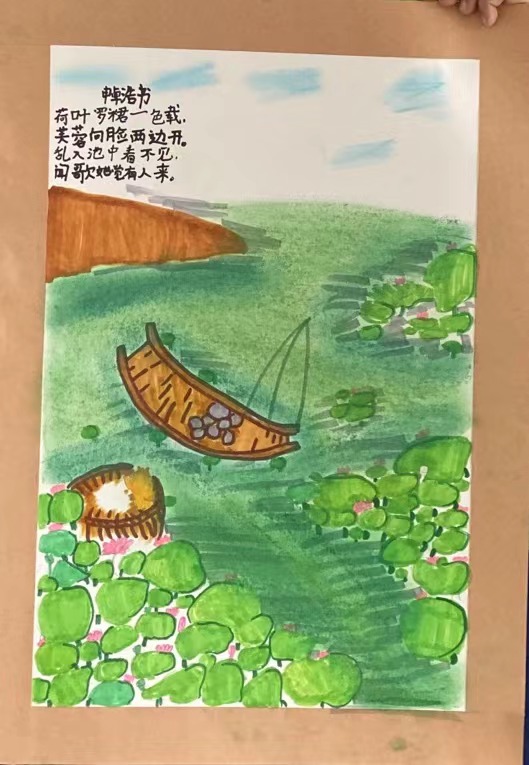 浩书
荷叶罗裙一色裁,
芙蓉向脸两边开。
乱入池中看不见,
闻歌始觉有人来。